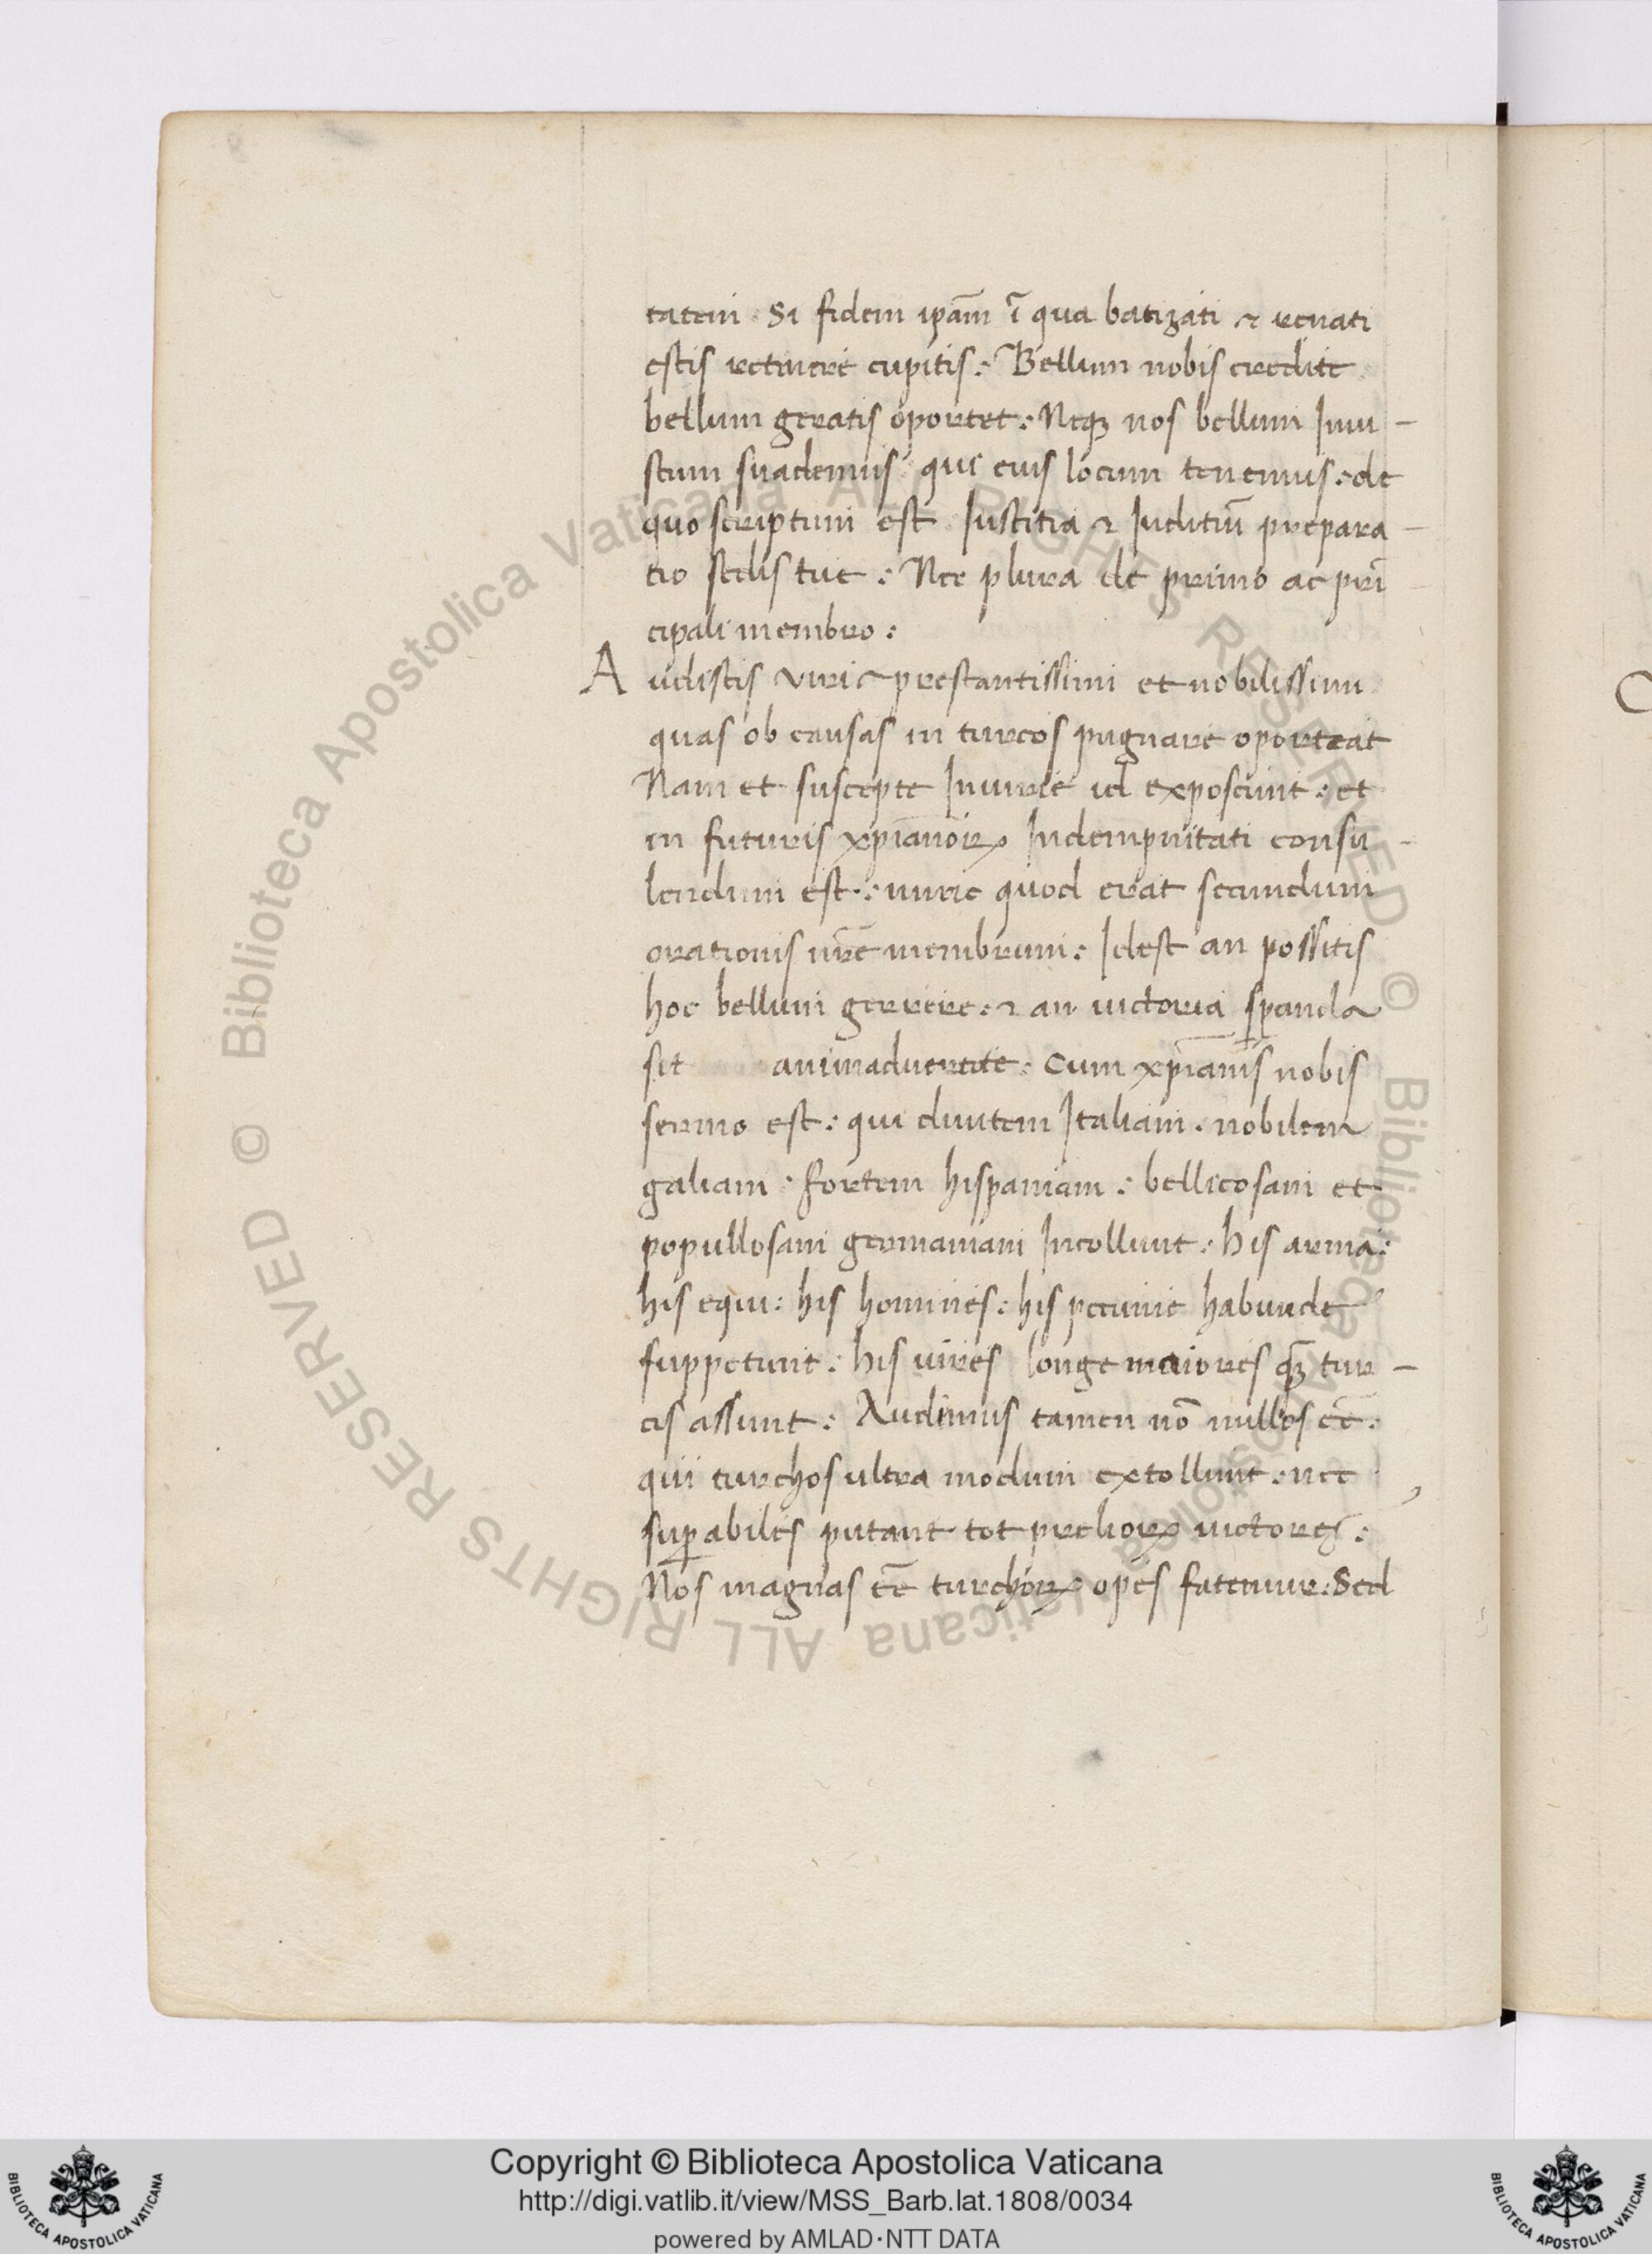 tatem. Si fidem ip̄am ī qua batizati ⁊ renati
estis retinere cupitis: Bellum nobis credite
bellum geratis oportet: Neqꝫ nos bellum Iniu-
stum suademus: qui eius locum tenemus: de
quo scriptum est Iustitia ⁊ Iuditiū prepara-
tio sedis tue: Nec plura de primo ac prī
cipali membro:
Audistis viri prestantissimi et nobilissimi
quas ob causas in turcos pugnare oporteat
Nam et suscepte Iniurie id exposcunt: et
in futuris xp̄ianorꝝ Indempnitati consu-
lendum est: nunc quod erat secundum
orationis nr̄e membrum: Idest an possitis
hoc bellum gerrere: ⁊ an uictoria sꝑanda
sit animaduertite: Cum xp̄ianis nobis
sermo est: qui diuitem Italiam. nobilem
galiam: fortem hispaniam: bellicosam et
popullosam germaniam Incollunt: his arma:
his equi: his homines: his pecunie habunde
suppetunt: his uires longe maiores qꝫ tur-
cis assunt: Audimus tamen nō nullos eē:
qui turchos ultra modum extollunt: nec
suꝑabiles putant tot preliorꝝ uictores:
Nos magnas eē turchorꝝ opes fatemur: Sed
Copyright © Biblioteca Apostolica Vaticana
http://digi.vatlib.it/view/MSS_Barb.lat.1808/0034
powered by AMLAD·NTT DATA
BIBLIOTECA APOSTOLICA VATICANA
BIBLIOTECA APOSTOLICA VATICANA
© Biblioteca Apostolica Vaticana ALL RIGHTS RESERVED © Biblioteca Apostolica Vaticana ALL RIGHTS RESERVED